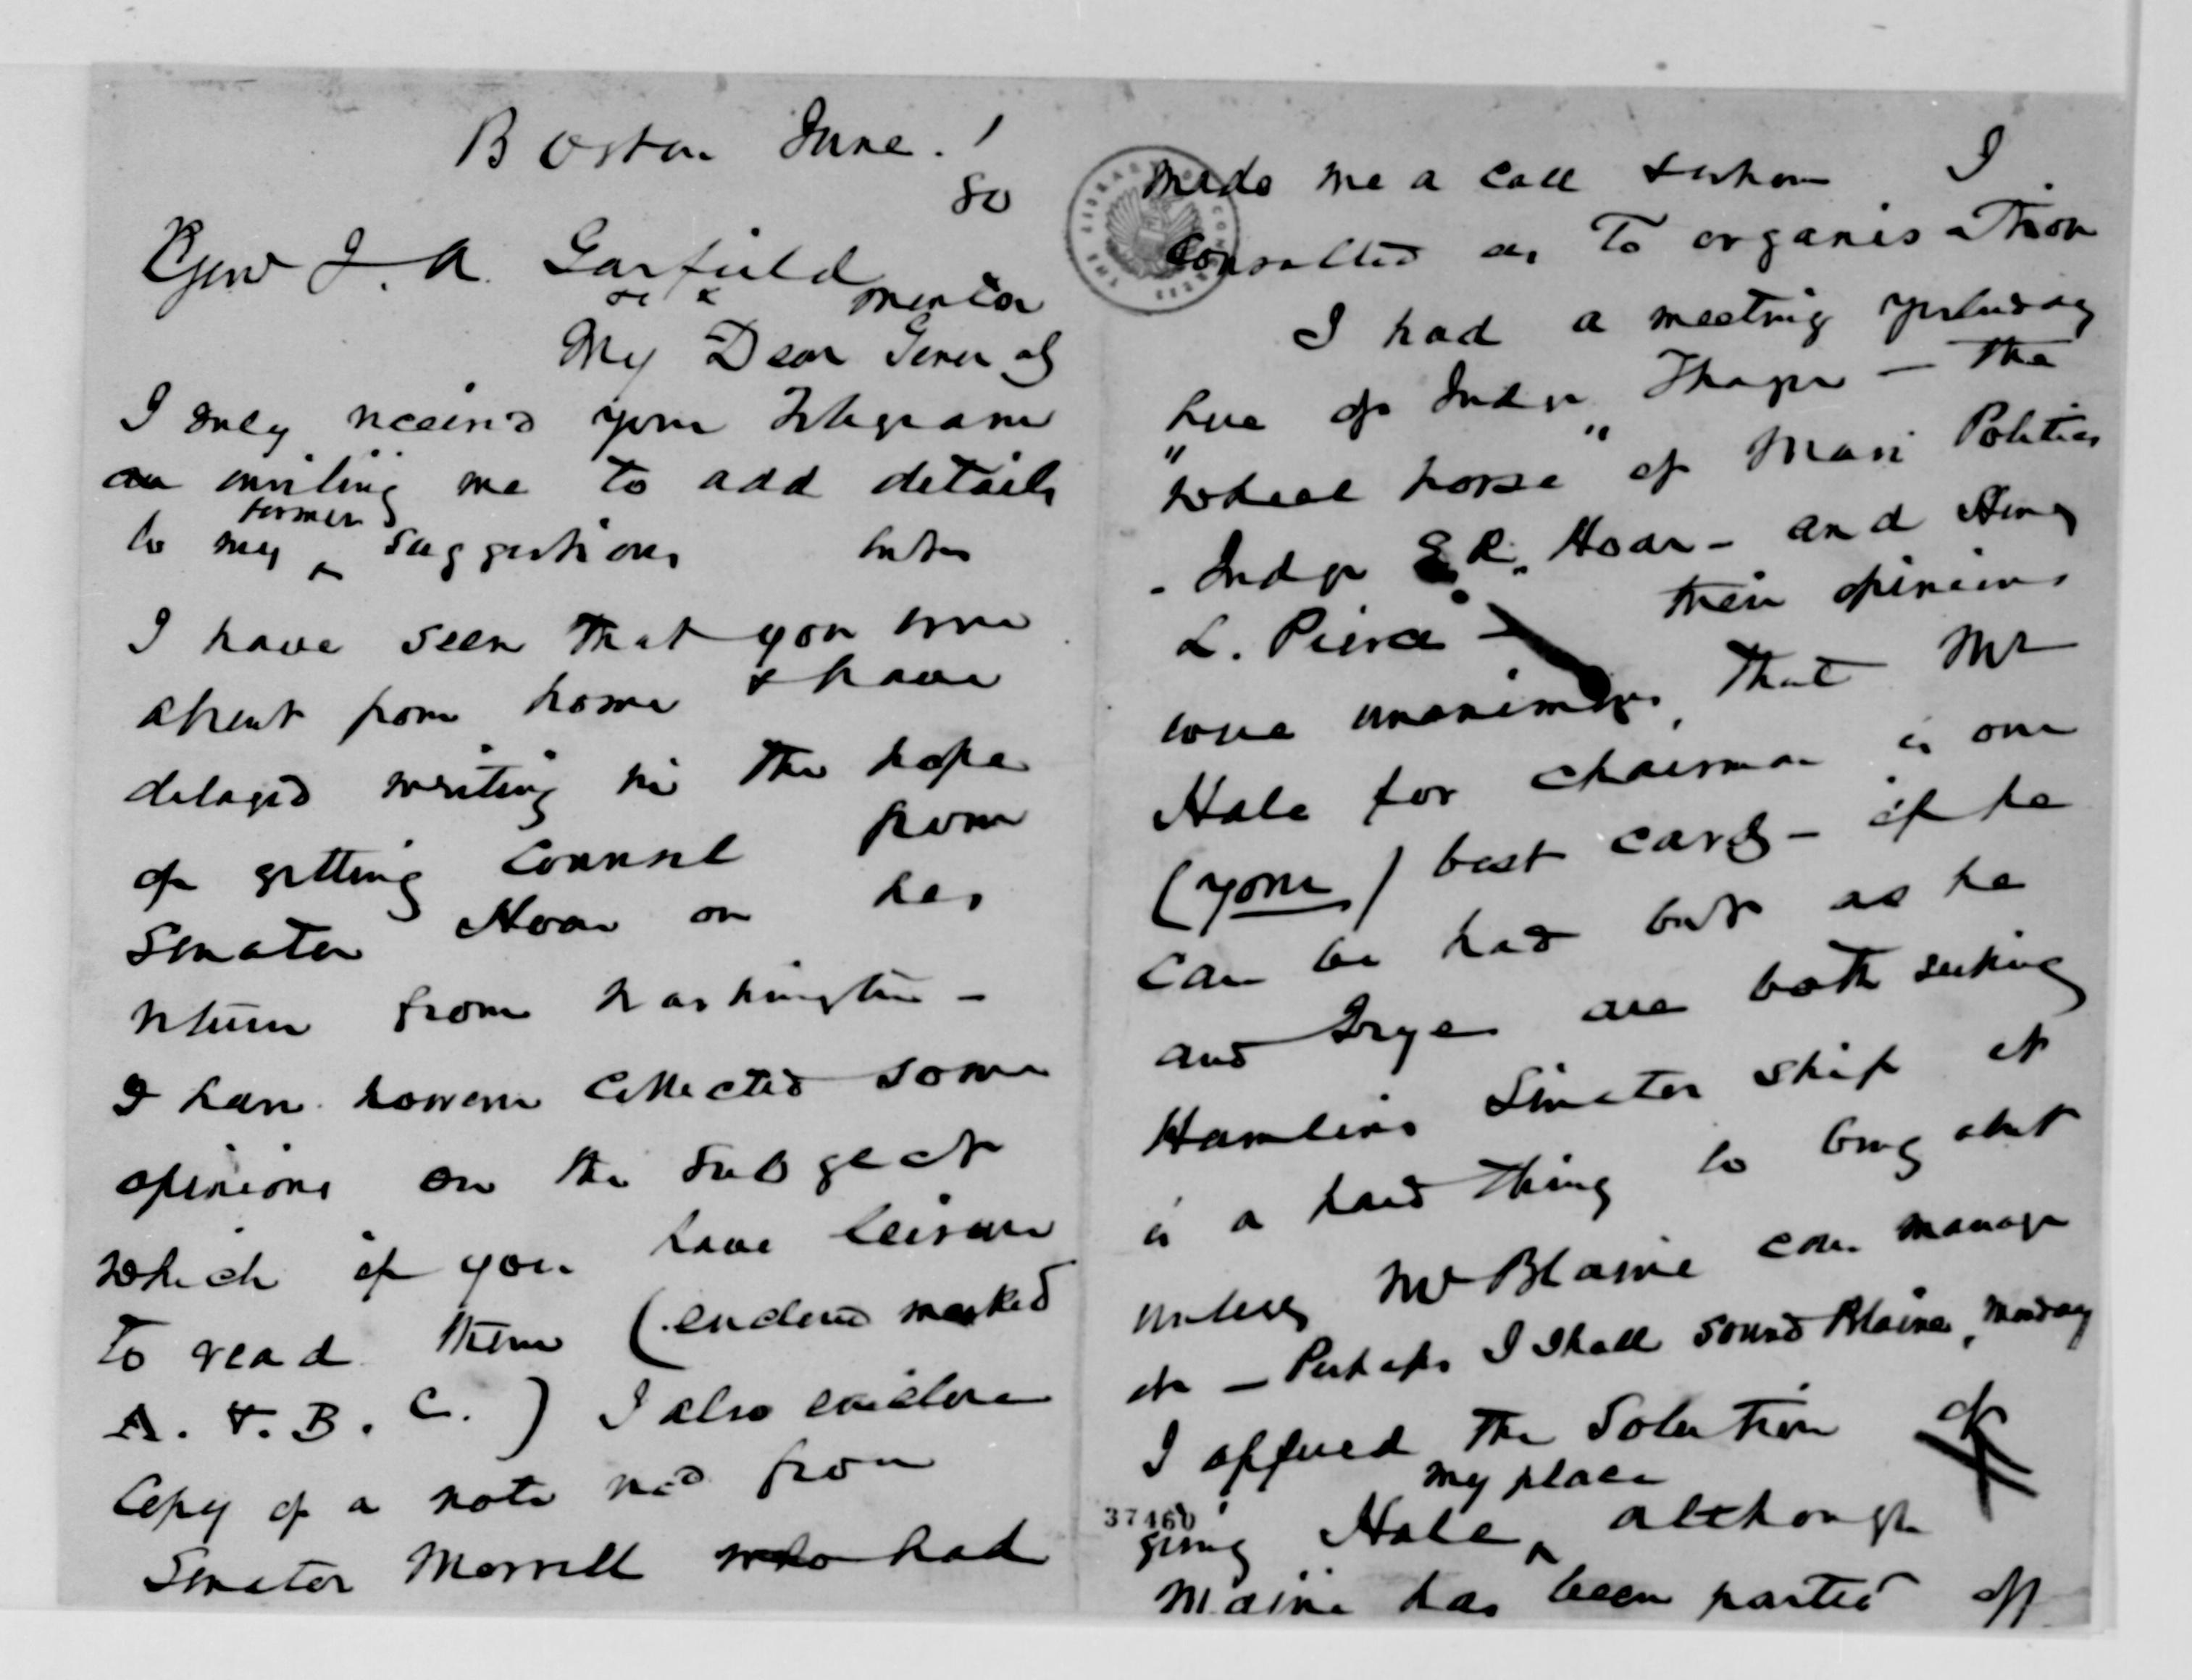 Boston June. 1
80
Genl J. A. Garfield
Mentor
My Dear General
I only received your Telegram
inviting me to add details
to my former suggestions but
I have seen that you were
absent from home & have
delayed writing in the hope
of getting counsel from
Senator Hoar on his
return from Washington -
I have however collected some
opinions on the subject
which if you have leisure
to read them (enclosed marked
A. & B. C.) I also enclose
Copy of a note recd from
Senator Morrill who had
made me a call & whom I
consulted as to organisation
I had a meeting yesterday
here of Judge Thayer - the
"wheel horse" of Mass Politics
- Judge E. R. Hoar - and Henry
L. Pierce - their opinions
were unanimous, that Mr
Hale for chairman is our
(your) best card - if he
can be had but as he
and Frye are both seeking
Hamlins Senator ship it
is a hard thing to bring abut
unless Mr Blaine can manage
it - Perhaps I shall sound Blaine, Monday
I offered the Solution of
giving Hale my place, although
37460
Maine has been parted off